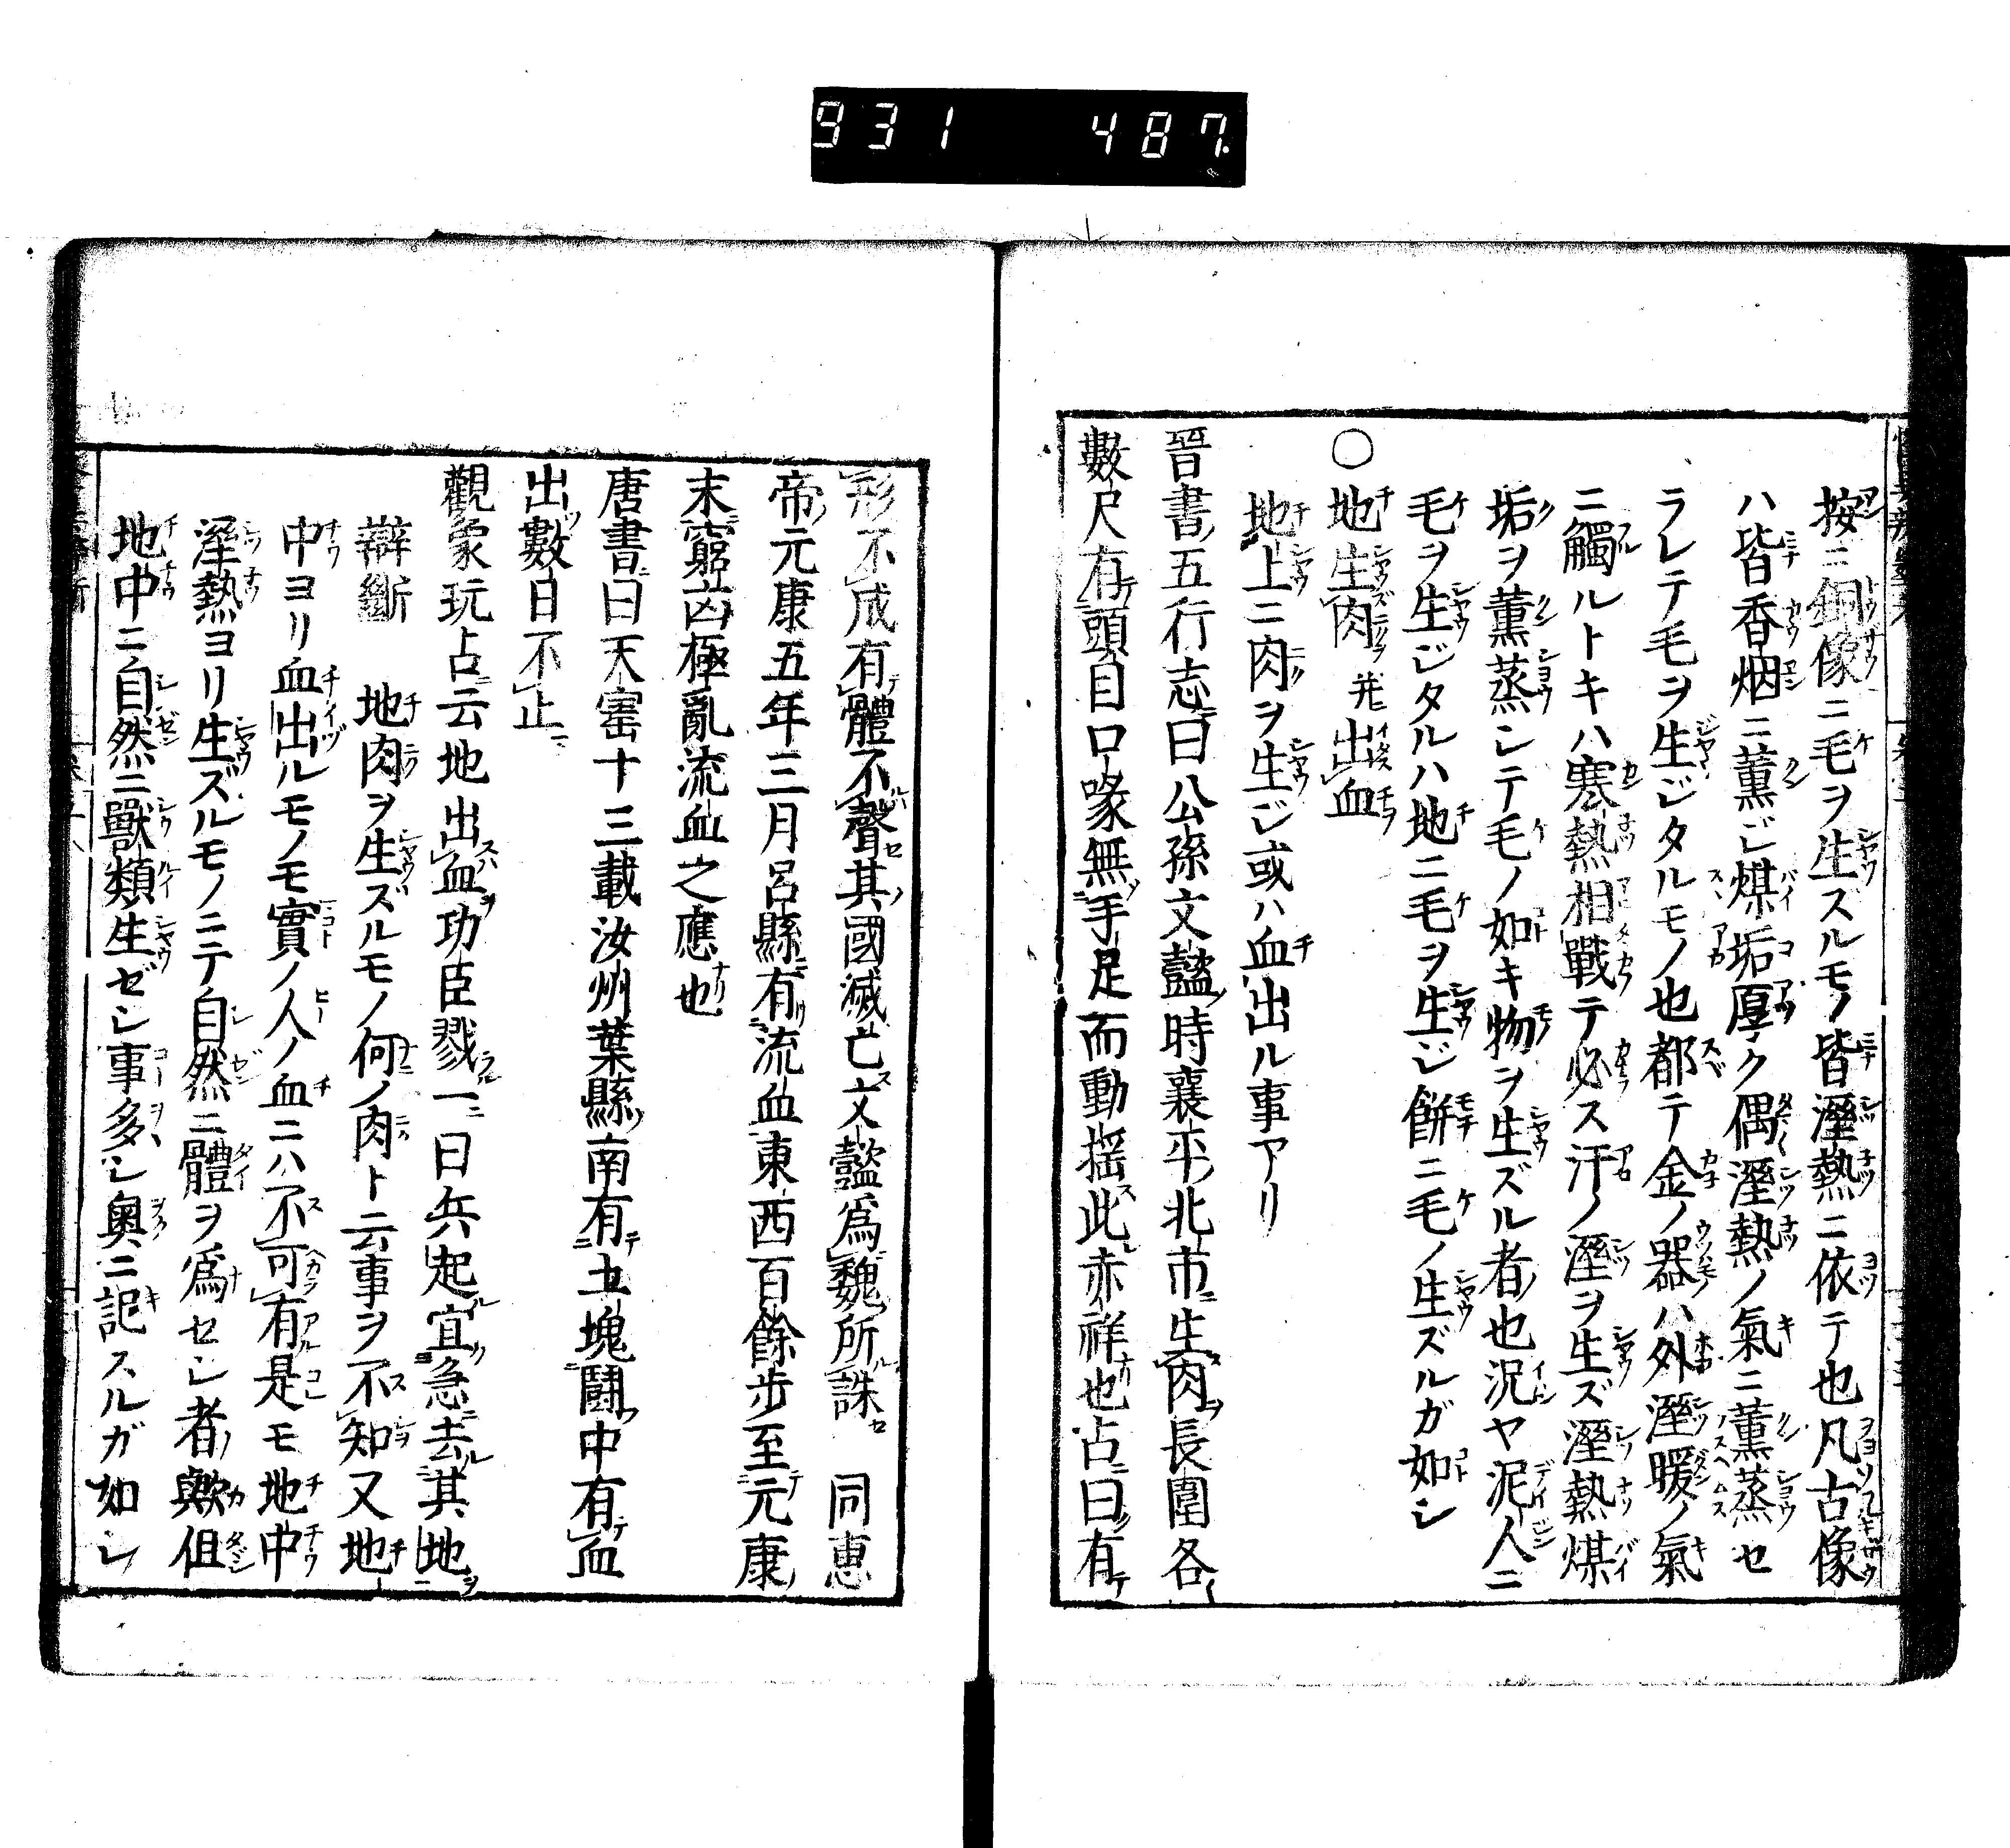 931 487
按ニ銅像ニ毛ヲ生スルモノ皆溼熱ニ依テ也凡古像
ハ皆香烟ニ薫ジ煤垢厚ク偶溼熱ノ氣ニ薫蒸セ
ラレテ毛ヲ生ジタルモノ也都テ金ノ器ハ外溼暖ノ氣
ニ觸ルトキハ寒熱相戰テ必ス汗ノ溼ヲ生ズ溼熱煤
垢ヲ薫蒸シテ毛ノ如キ物ヲ生ズル者也況ヤ泥人ニ
毛ヲ生ジタルハ地ニ毛ヲ生ジ餅ニ毛ノ生ズルガ如シ
○地生肉 并出血
地上ニ肉ヲ生ジ或ハ血出ル事アリ
晉書五行志曰公孫文懿時襄平北市生肉長圍各
數尺有頭目口喙無手足而動揺此亦祥也占曰有
形不成有體不聲其國滅亡文懿爲魏所誅 同惠
帝元康五年三月呂縣有流血東西百餘步至元康
末窮凶極亂流血之應也
唐書曰天寳十三載汝州葉縣南有土塊鬪中有血
出數日不止
觀象玩占云地出血功臣戮一曰兵起宜急去其地
辯斷 地肉ヲ生ズルモノ何ノ肉ト云事ヲ不知又地
中ヨリ血出ルモノモ實ノ人ノ血ニハ不可有是モ地中
溼熱ヨリ生ズルモノニテ自然ニ體ヲ爲セシ者歟但
地中ニ自然ニ獸類生ゼシ事多シ奧ニ記スルガ如シ